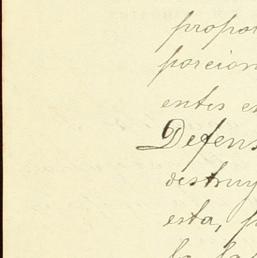 propor
porcion
entes e
Defens
destruy
esta, p